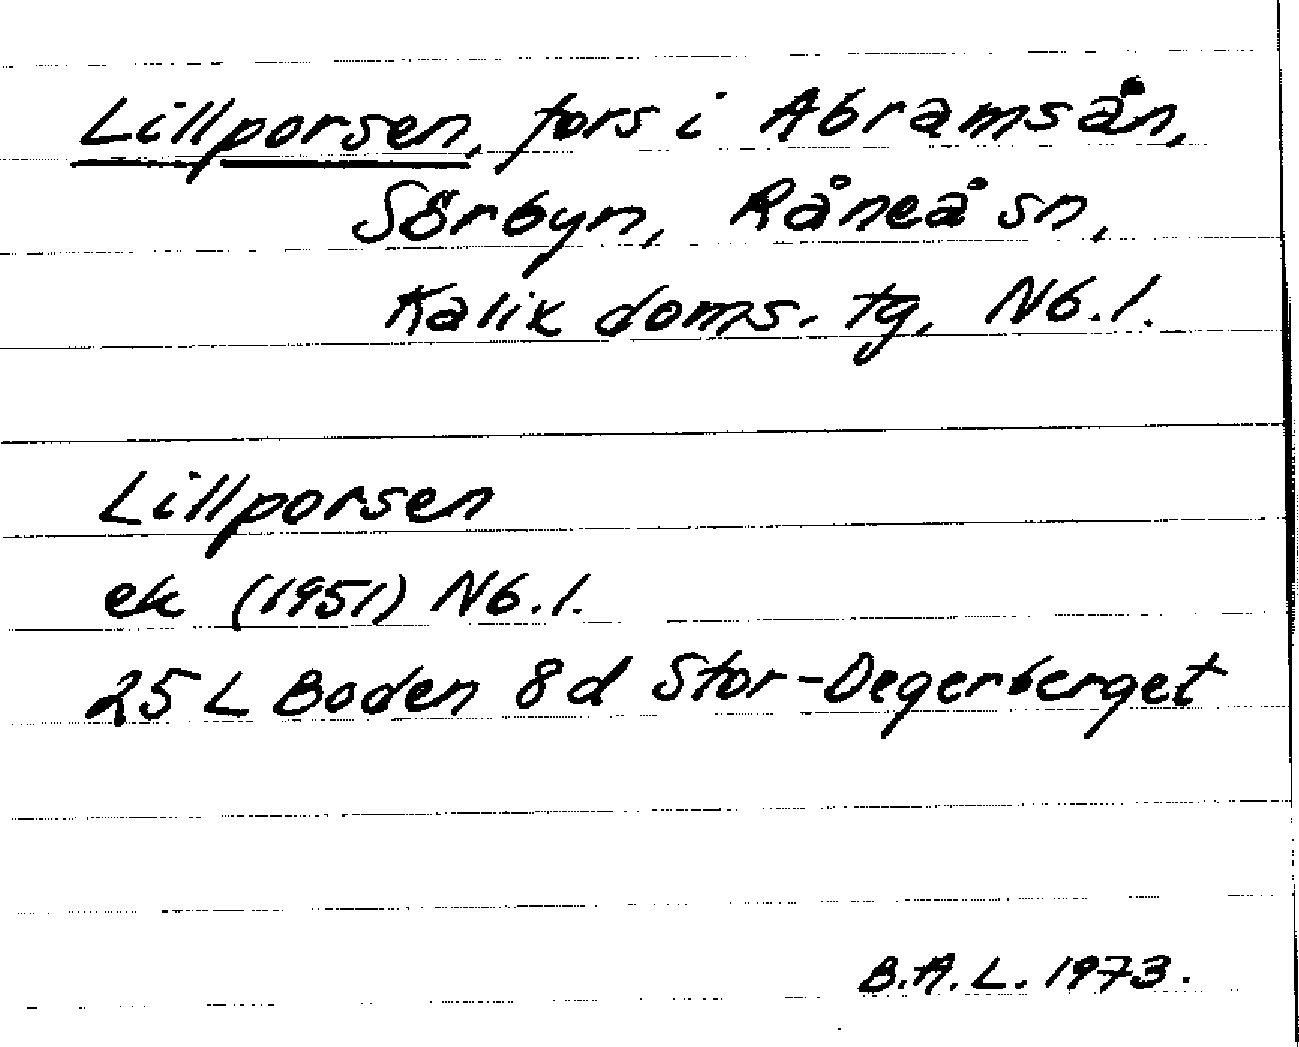 Lillporsen, fors i Abramsån,
Sörbyn, Råneå sn,
Kalix doms. tg, Nb. l.
Lillporsen
ek (1951) Nb. l.
25 L Boden 8d Stor-Degerberget
B.A.L. 1973.